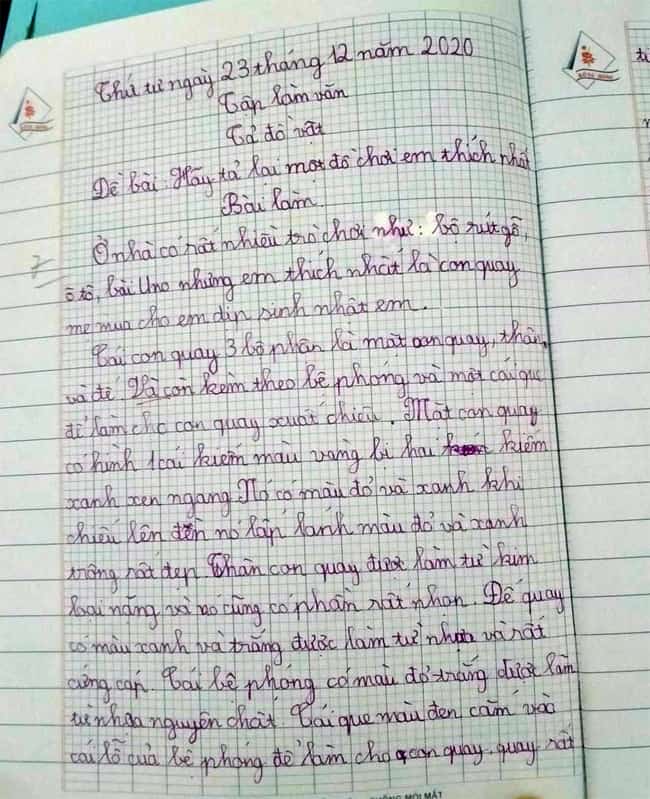 Thứ tư ngày 23 tháng 12 năm 2020
Tập làm văn
Tả đồ vật
Đề bài: Hãy tả lại một đồ chơi em thích nhất
Bài làm.
Ở nhà có rất nhiều trò chơi như: bộ rút gỗ,
ô tô, bài Uno nhưng em thích nhất là con quay
mẹ mua cho em dịp sinh nhật em.
Cái con quay 3 bộ phận là mặt con quay, thân,
và đế. Và còn kèm theo bệ phóng và một cái que
để làm cho con quay xuất chiêu. Mặt con quay
có hình 1 cái kiếm màu vàng bị hai kiếm
xanh xen ngang. Nó có màu đỏ và xanh khi
chiếu lên đèn nó lấp lánh màu đỏ và xanh
trông rất đẹp. Thân con quay được làm từ kim
loại nặng và nó cũng có phần rất nhọn. Đế quay
có màu xanh và trắng được làm từ nhựa và rất
cứng cáp. Cái bệ phóng có màu đỏ trắng được làm
từ nhựa nguyên chất. Cái que màu đen cắm vào
cái lỗ của bệ phóng để làm cho con quay quay rất